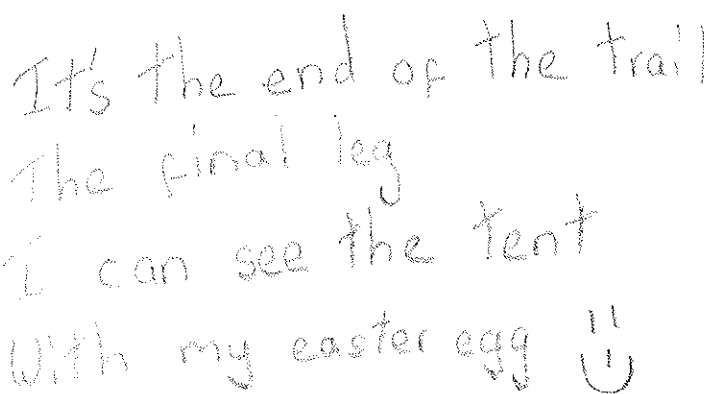 It's the end of the trail
The final leg
I can see the tent
With my easter egg